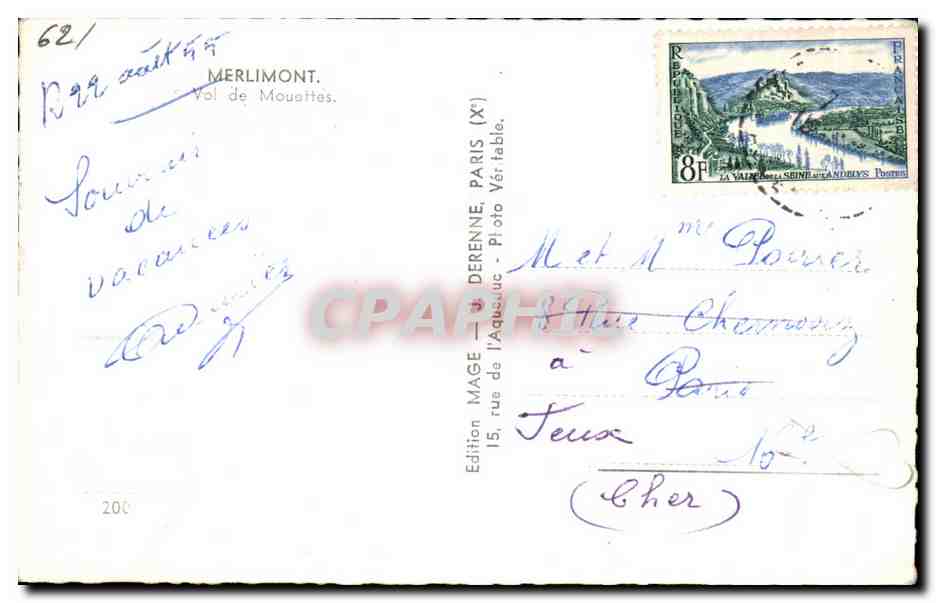 62/
22 août 55
MERLIMONT.
Vol de Mouettes.
Souvenir
de
vacances
200
Edition MAGE — J. DERENNE, PARIS (Xe)
15, rue de l'Aqueduc - Photo Véritable.
RÉPUBLIQUE
FRANÇAISE
8F
LA VALLÉE DE LA SEINE AUX ANDELYS POSTES
M et Mme
8 Rue
à
Paris
(Cher)
CPARHI